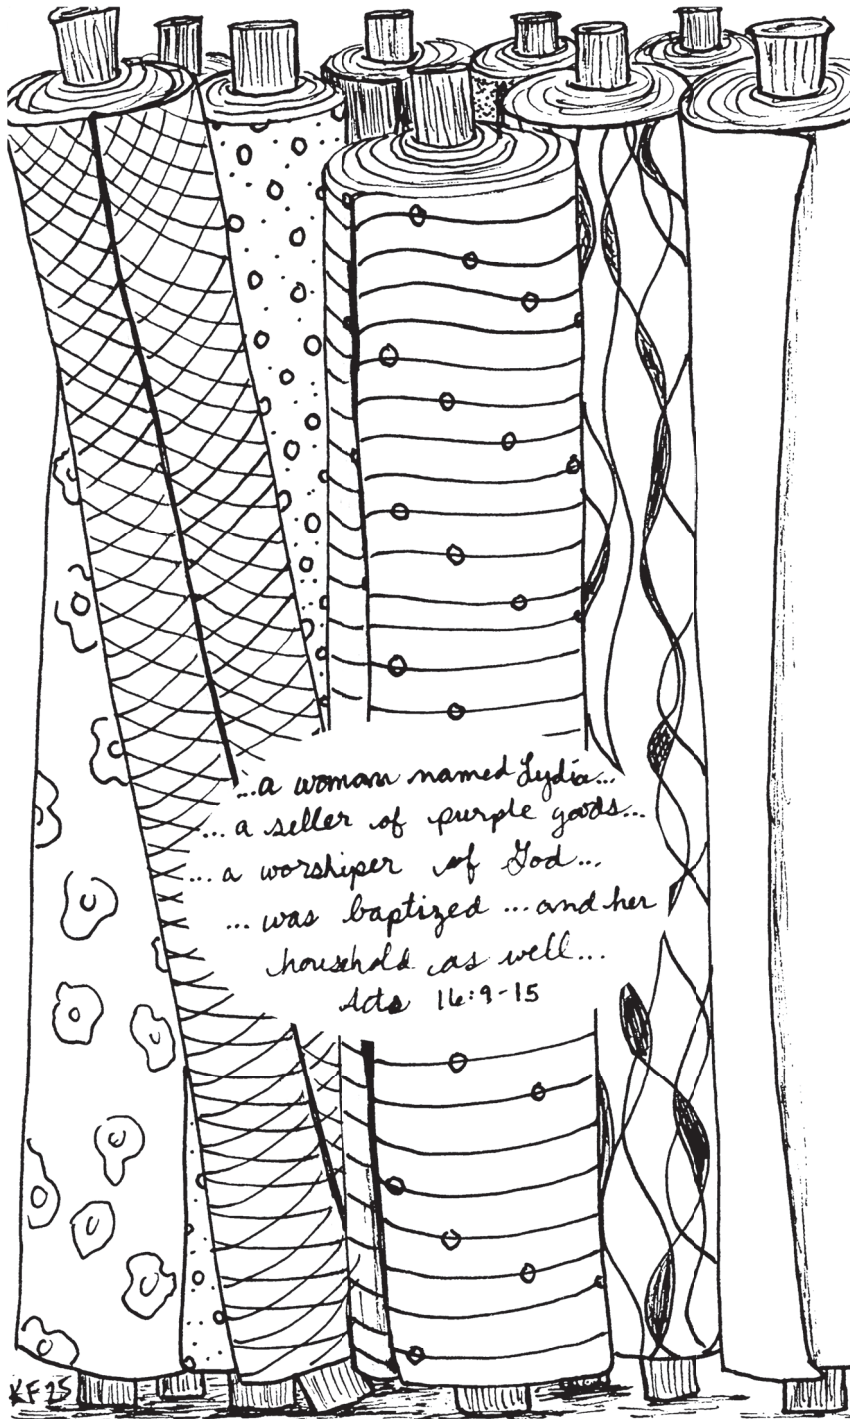 ...a woman named Lydia...
...a seller of purple goods...
...a worshiper of God...
...was baptized ...and her
household as well...
Acts 16:9-15
KF 25